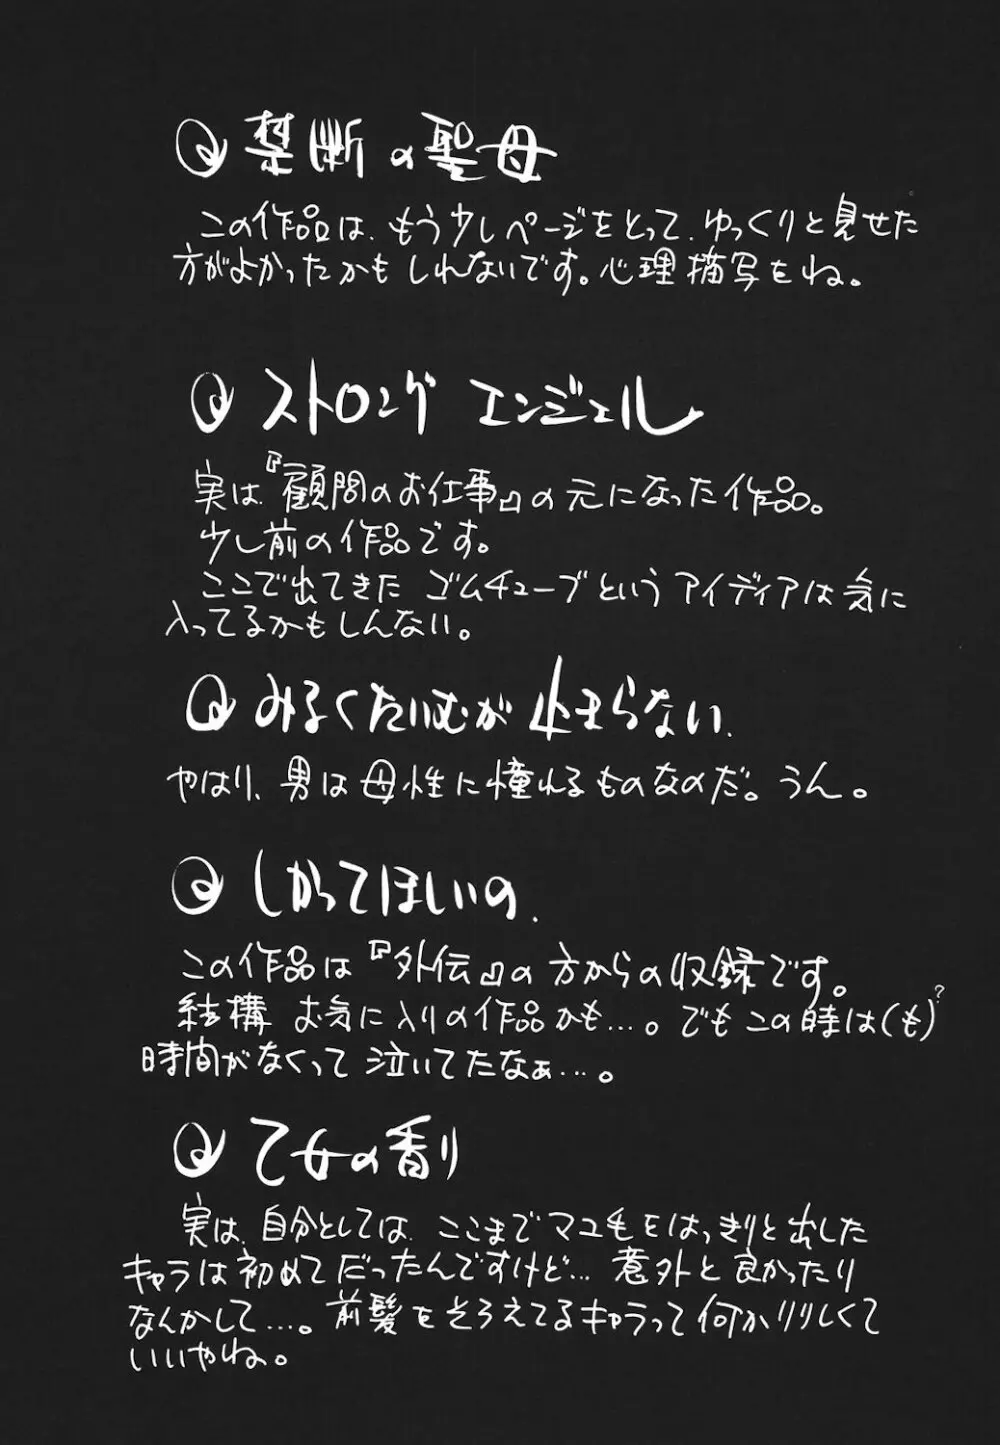 禁断の聖母
この作品は、もう少しページをとって、ゆっくりと見せた
方がよかったかもしれないです。心理描写をね。
ストロングエンジェル
実は、『顧問のお仕事』の元になった作品。
少し前の作品です。
ここで出てきたゴムチューブというアイディアは気に
入ってるかもしんない。
みるくたいむが止まらない、
やはり、男は母性に憧れるものなのだ。うん。
しかってほしいの、
この作品は『外伝』の方からの収録です。
結構お気に入りの作品かも…。でもこの時は(も)?
時間がなくって泣いてたなぁ…。
乙女の香り
実は、自分としては、ここまでマユ毛をはっきりと出した
キャラは初めてだったんですけど…意外と良かったり
なんかして…。前髪をそろえてるキャラって何かりりしくて
いいやね。